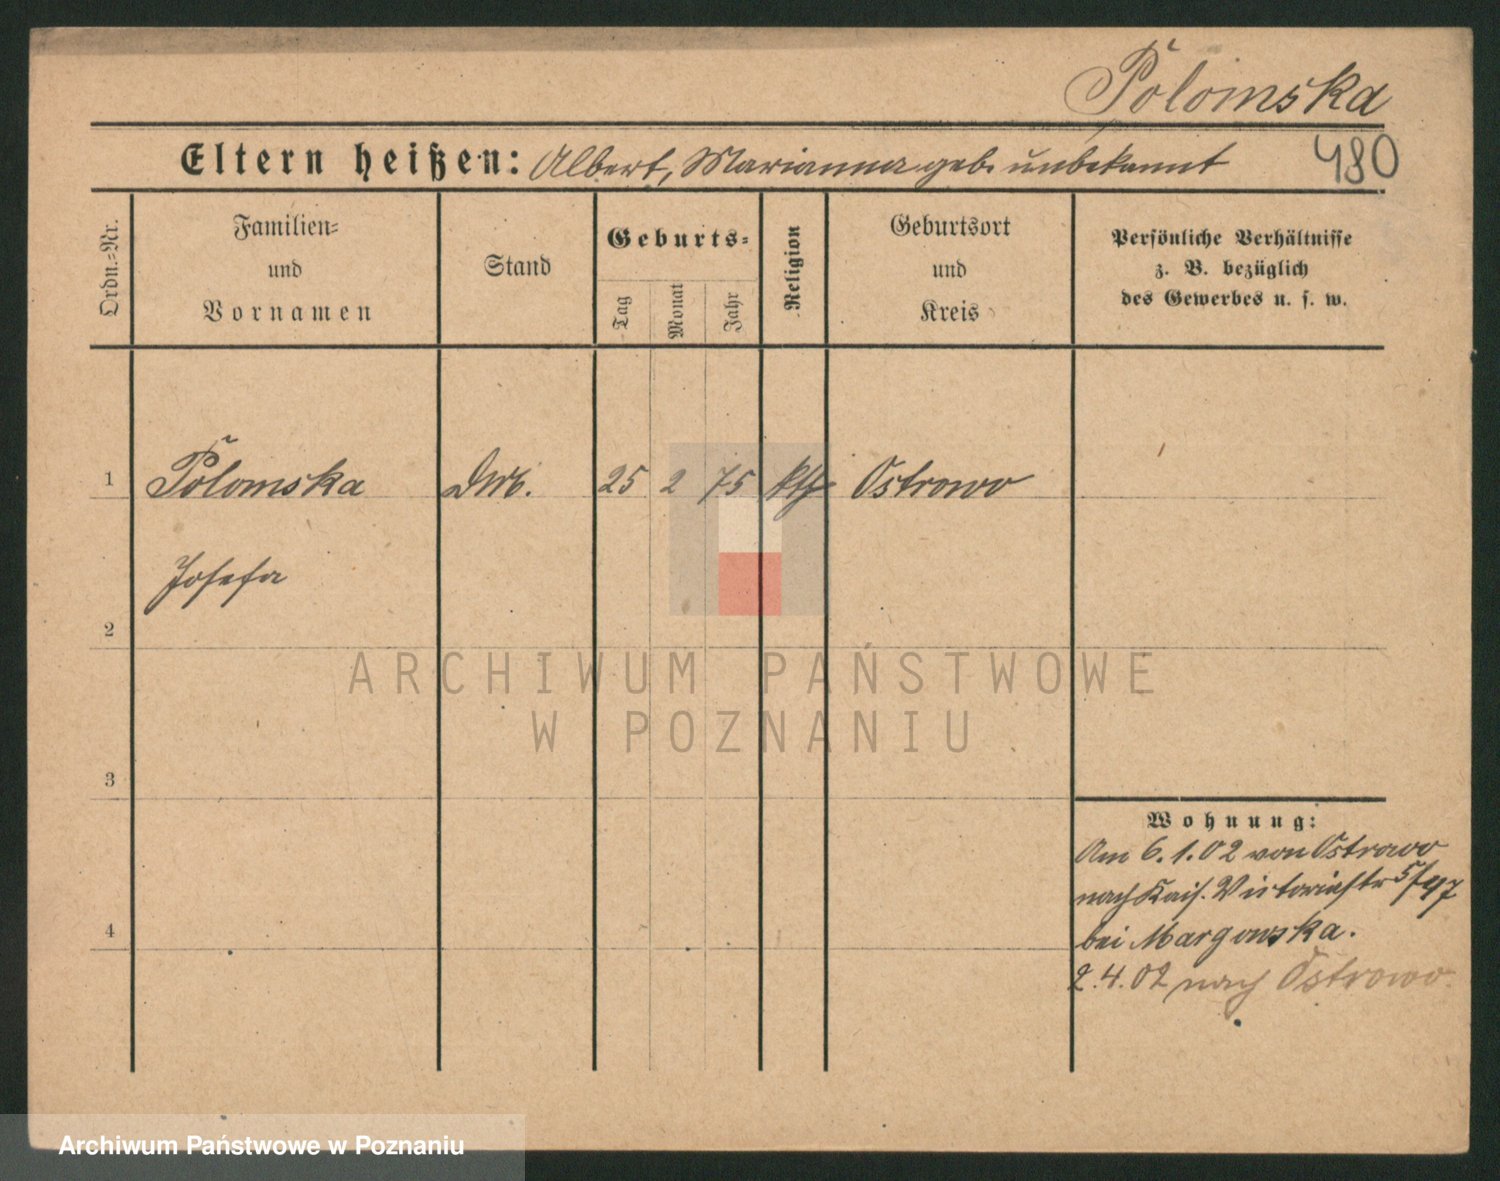 Polomska
480
Eltern heißen: Albert, Marianna geb. unbekannt
Ordn.-Nr.
Familien-
und
Vornamen
Stand
Geburts-
Tag
Monat
Jahr
Religion
Geburtsort
und
Kreis
Persönliche Verhältnisse
z. B. bezüglich
des Gewerbes u. s. w.
1 Polomska 25 2 75 kth Ostrowo
Josefa
2
ARCHIWUM PAŃSTWOWE
W POZNANIU
3
Wohnung:
Am 6.1.02 von Ostrowo
nach Kais. Victoriastr 5/47
bei Margowska.
4
2.4.02 nach Ostrowo.
Archiwum Państwowe w Poznaniu